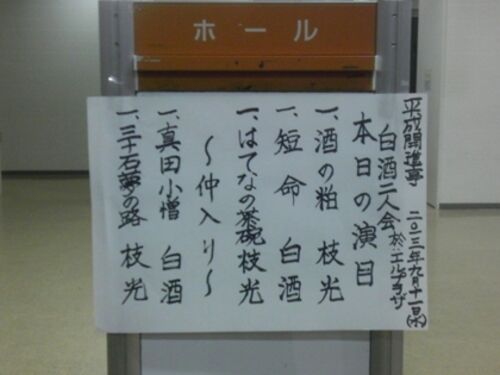 ホール
平成開進亭 二〇一三年九月十一日(水)
白酒二人会 於:エルプラザ
本日の演目
一、酒の粕 枝光
一、短命 白酒
一、はてなの茶碗 枝光
〜仲入り〜
一、真田小僧 白酒
一、三十石夢の路 枝光